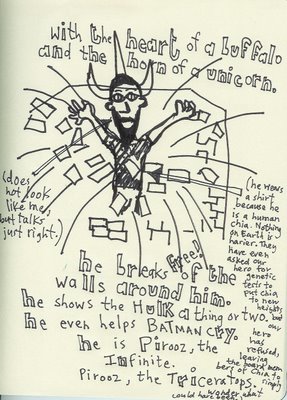 with the heart of a buffalo
and the horn of a unicorn.
(does
not look
like me,
but talks
just right.)
(he wears
a shirt
because he
is a human
chia. Nothing
on Earth is
harier. They
have even
asked our
hero for
genetic
tests to
put chia
to new
heights
but
our
hero
has
refused,
leaving
the board mem
bers of Chia to
simply
wonder what
could have been.)
he breaks free! of the
walls around him.
he shows the HULK a thing or two.
he even helps BATMAN cry.
he is Pirooz, the
Infinite.
Pirooz, the Triceratops.